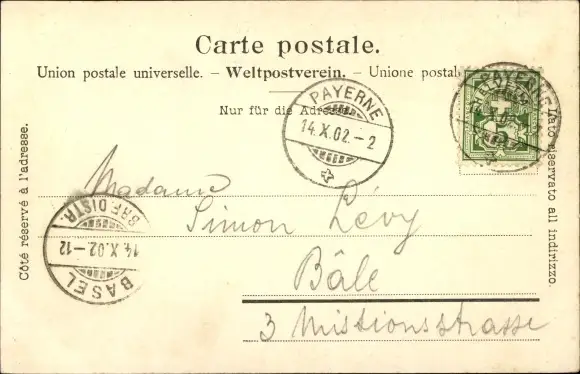 Carte postale.
Union postale universelle. – Weltpostverein. – Unione postal
Nur für die Adresse
PAYERNE
14.X.02.–2
PAYERNE
Côté réservé à l'adresse.
Lato riservato all indirizzo.
Madame
Simon Lévy
Bâle
3 Missionsstrasse
BASEL
14.X.02.–12
BRF.DISTR.